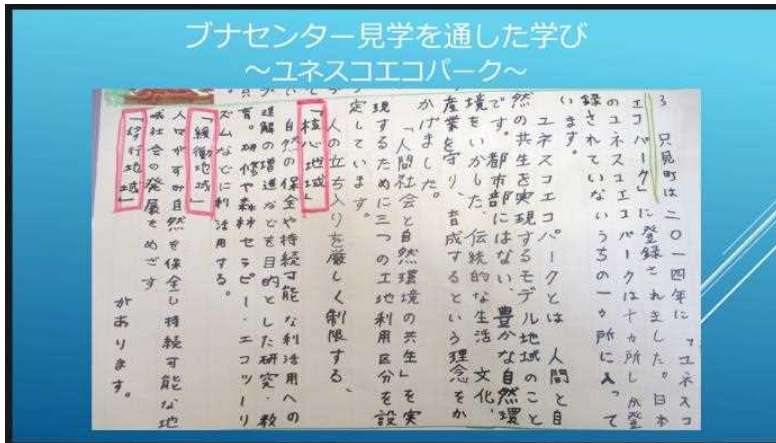 ブナセンター見学を通した学び
~ユネスコエコパーク~
3 只見町は二〇一四年に「ユネスコ
エコパーク」に登録されました。日本
のユネスコエコパークは十カ所しか登
録されていないうちの一カ所に入って
います。
ユネスコエコパークとは人間と自
然の共生を実現するモデル地域のこと
です。都市部にはない、豊かな自然環
境をいかした、伝統的な生活、文化、
産業を守り、育成するという理念をか
かげました。
「人間社会と自然環境の共生」を実
現するために三つの土地利用区分を設
定しています。
人の立ち入りを厳しく制限する、
「核心地域」
自然の保全や持続可能な利活用への
理解の増進などを目的とした研究・教
育。研修や森林セラピー・エコツーリ
ズムなどに利活用する。
「緩衝地域」
人々がすみ自然を保全し持続可能な地
域社会の発展をめざす
「移行地域」
があります。